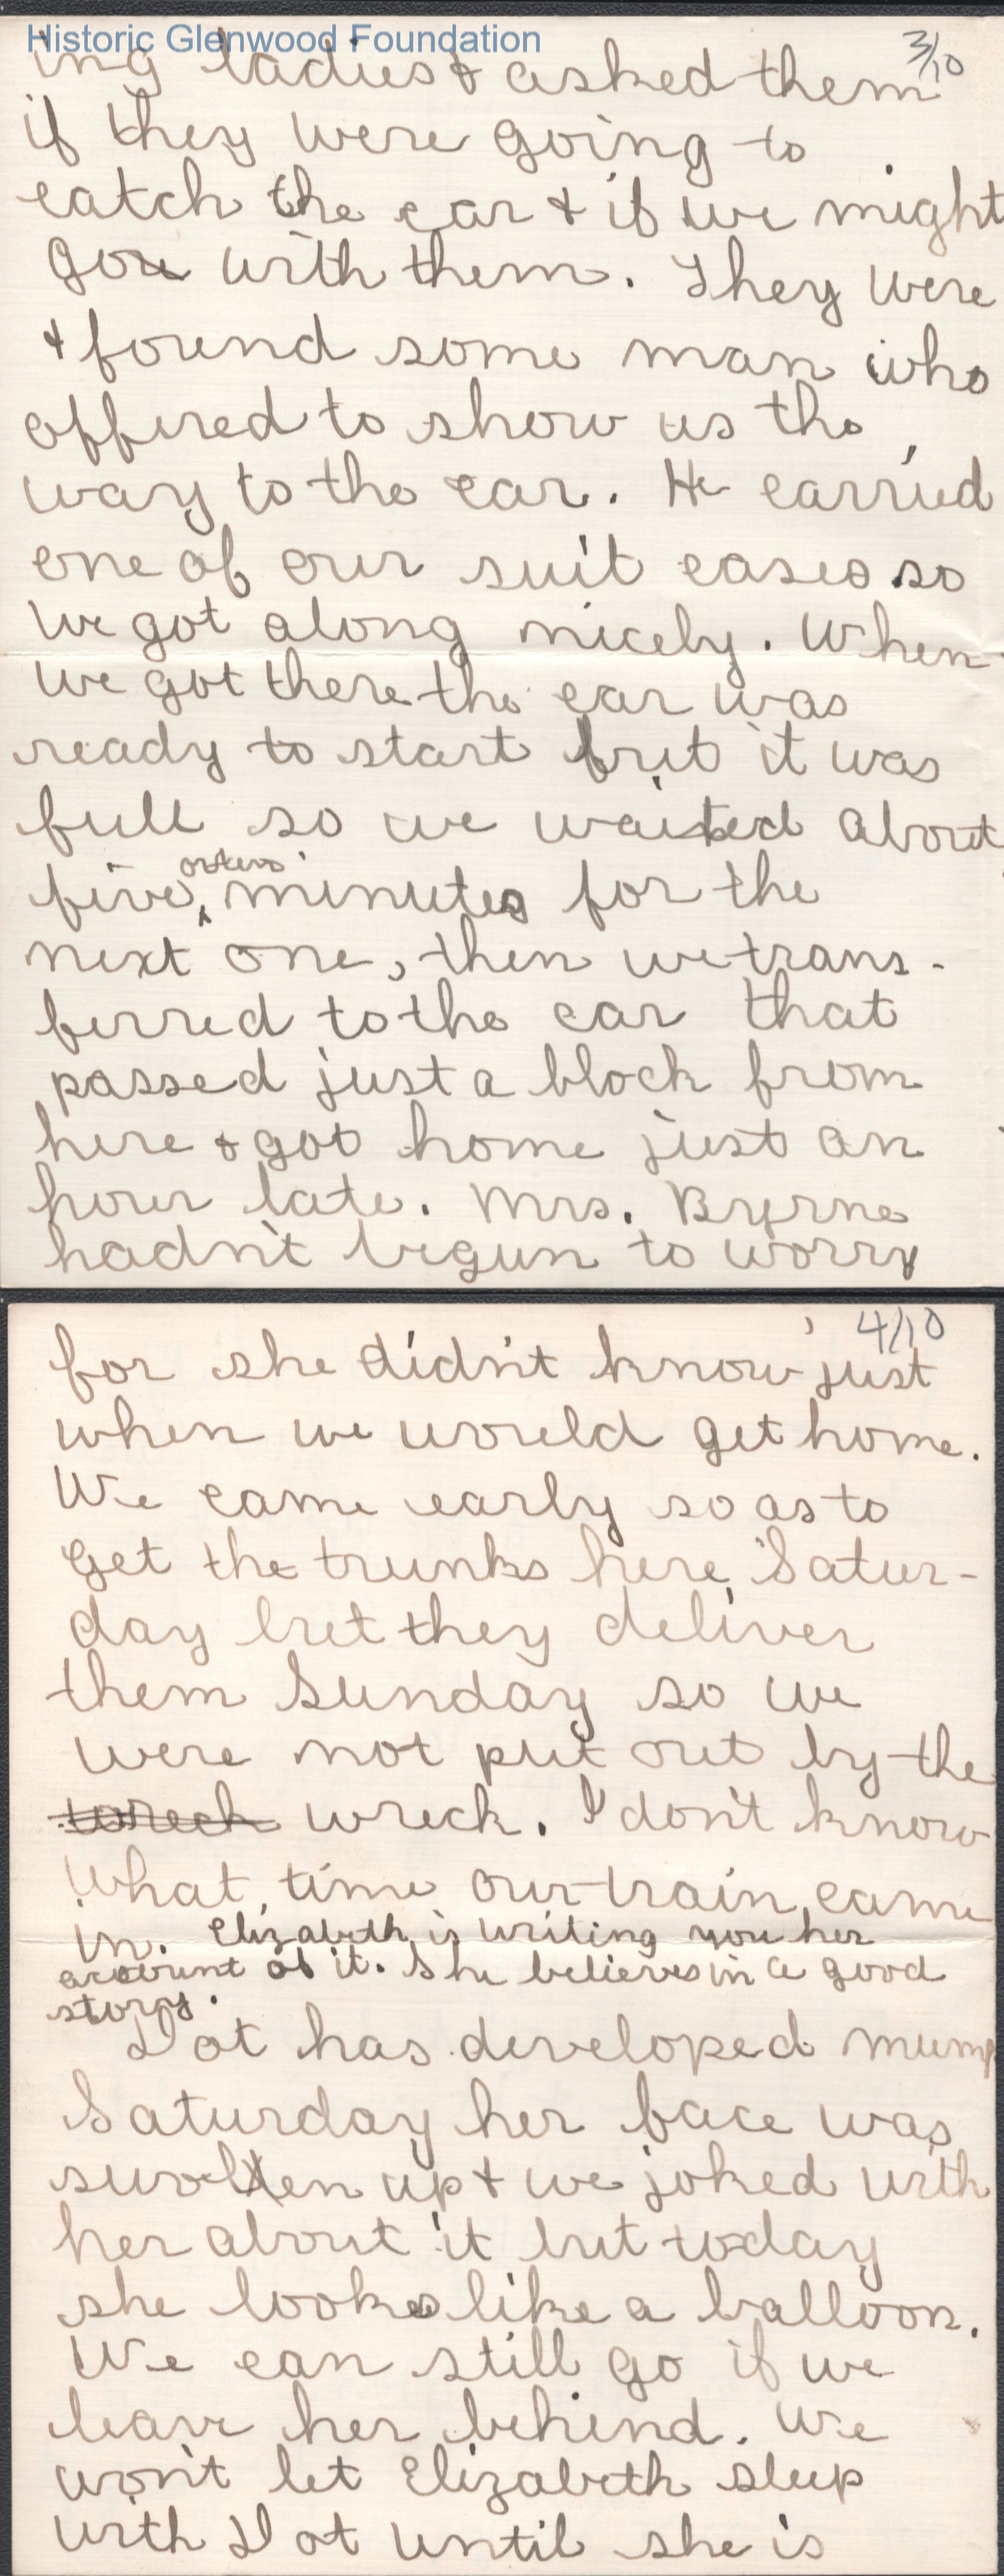 Historic Glenwood Foundation
3/10
ing ladies & asked them
if they were going to
catch the car & if we might
go with them. They were
& found some man who
offered to show us the
way to the car. He carried
one of our suit cases so
we got along nicely. When
we got there the car was
ready to start but it was
full so we waited about
five minutes for the
next one, then we trans-
ferred to the car that
passed just a block from
here & got home just an
hour late. Mrs. Byrne
hadn't begun to worry
4/10
for she didn't know just
when we would get home.
We came early so as to
get the trunks here Satur-
day but they deliver
them Sunday so we
were not put out by the
wreck wreck. I don't know
what time our train came
in. Elizabeth is writing you her
account of it. She believes in a good
story.
Dot has developed mump
Saturday her face was
swollen up & we joked with
her about it but today
she looks like a balloon.
We can still go if we
leave her behind. We
won't let Elizabeth sleep
with Dot until she is